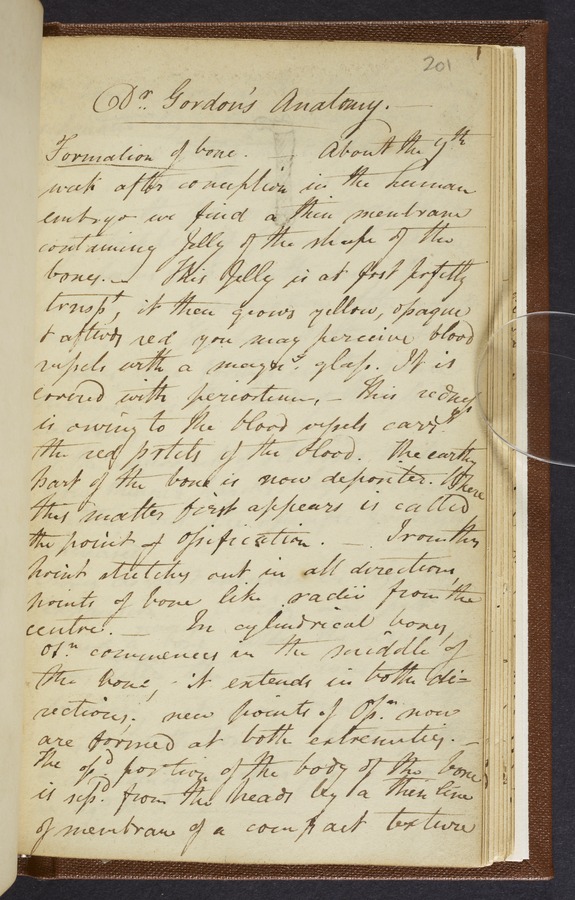 201
Dr. Gordon's Anatomy.
Formation of bone. — About the 7th
week after conception in the human
embryo we find a thin membrane
containing Jelly of the shape of the
bones. — This Jelly is at first perfectly
transpt, it then grows yellow, opaque
& aftwds red, you may perceive blood
vessels with a magng. glass. It is
covered with periosteum, — This redness
is owing to the blood vessels carryg
the red prtcls of the blood. The earthy
part of the bone is now deposited. Where
this matter first appears is called
the point of Ossification. — From this
point stretches out in all directions,
points of bone like radii from the
centre. — In cylindrical bones,
osn. commences in the middle of
the bone, - it extends in both di=
rections; new points of Osn. now
are formed at both extremities. —
The ofd portion of the body of the bone
is sepd. from the heads by a thin line
of membrane of a compact texture